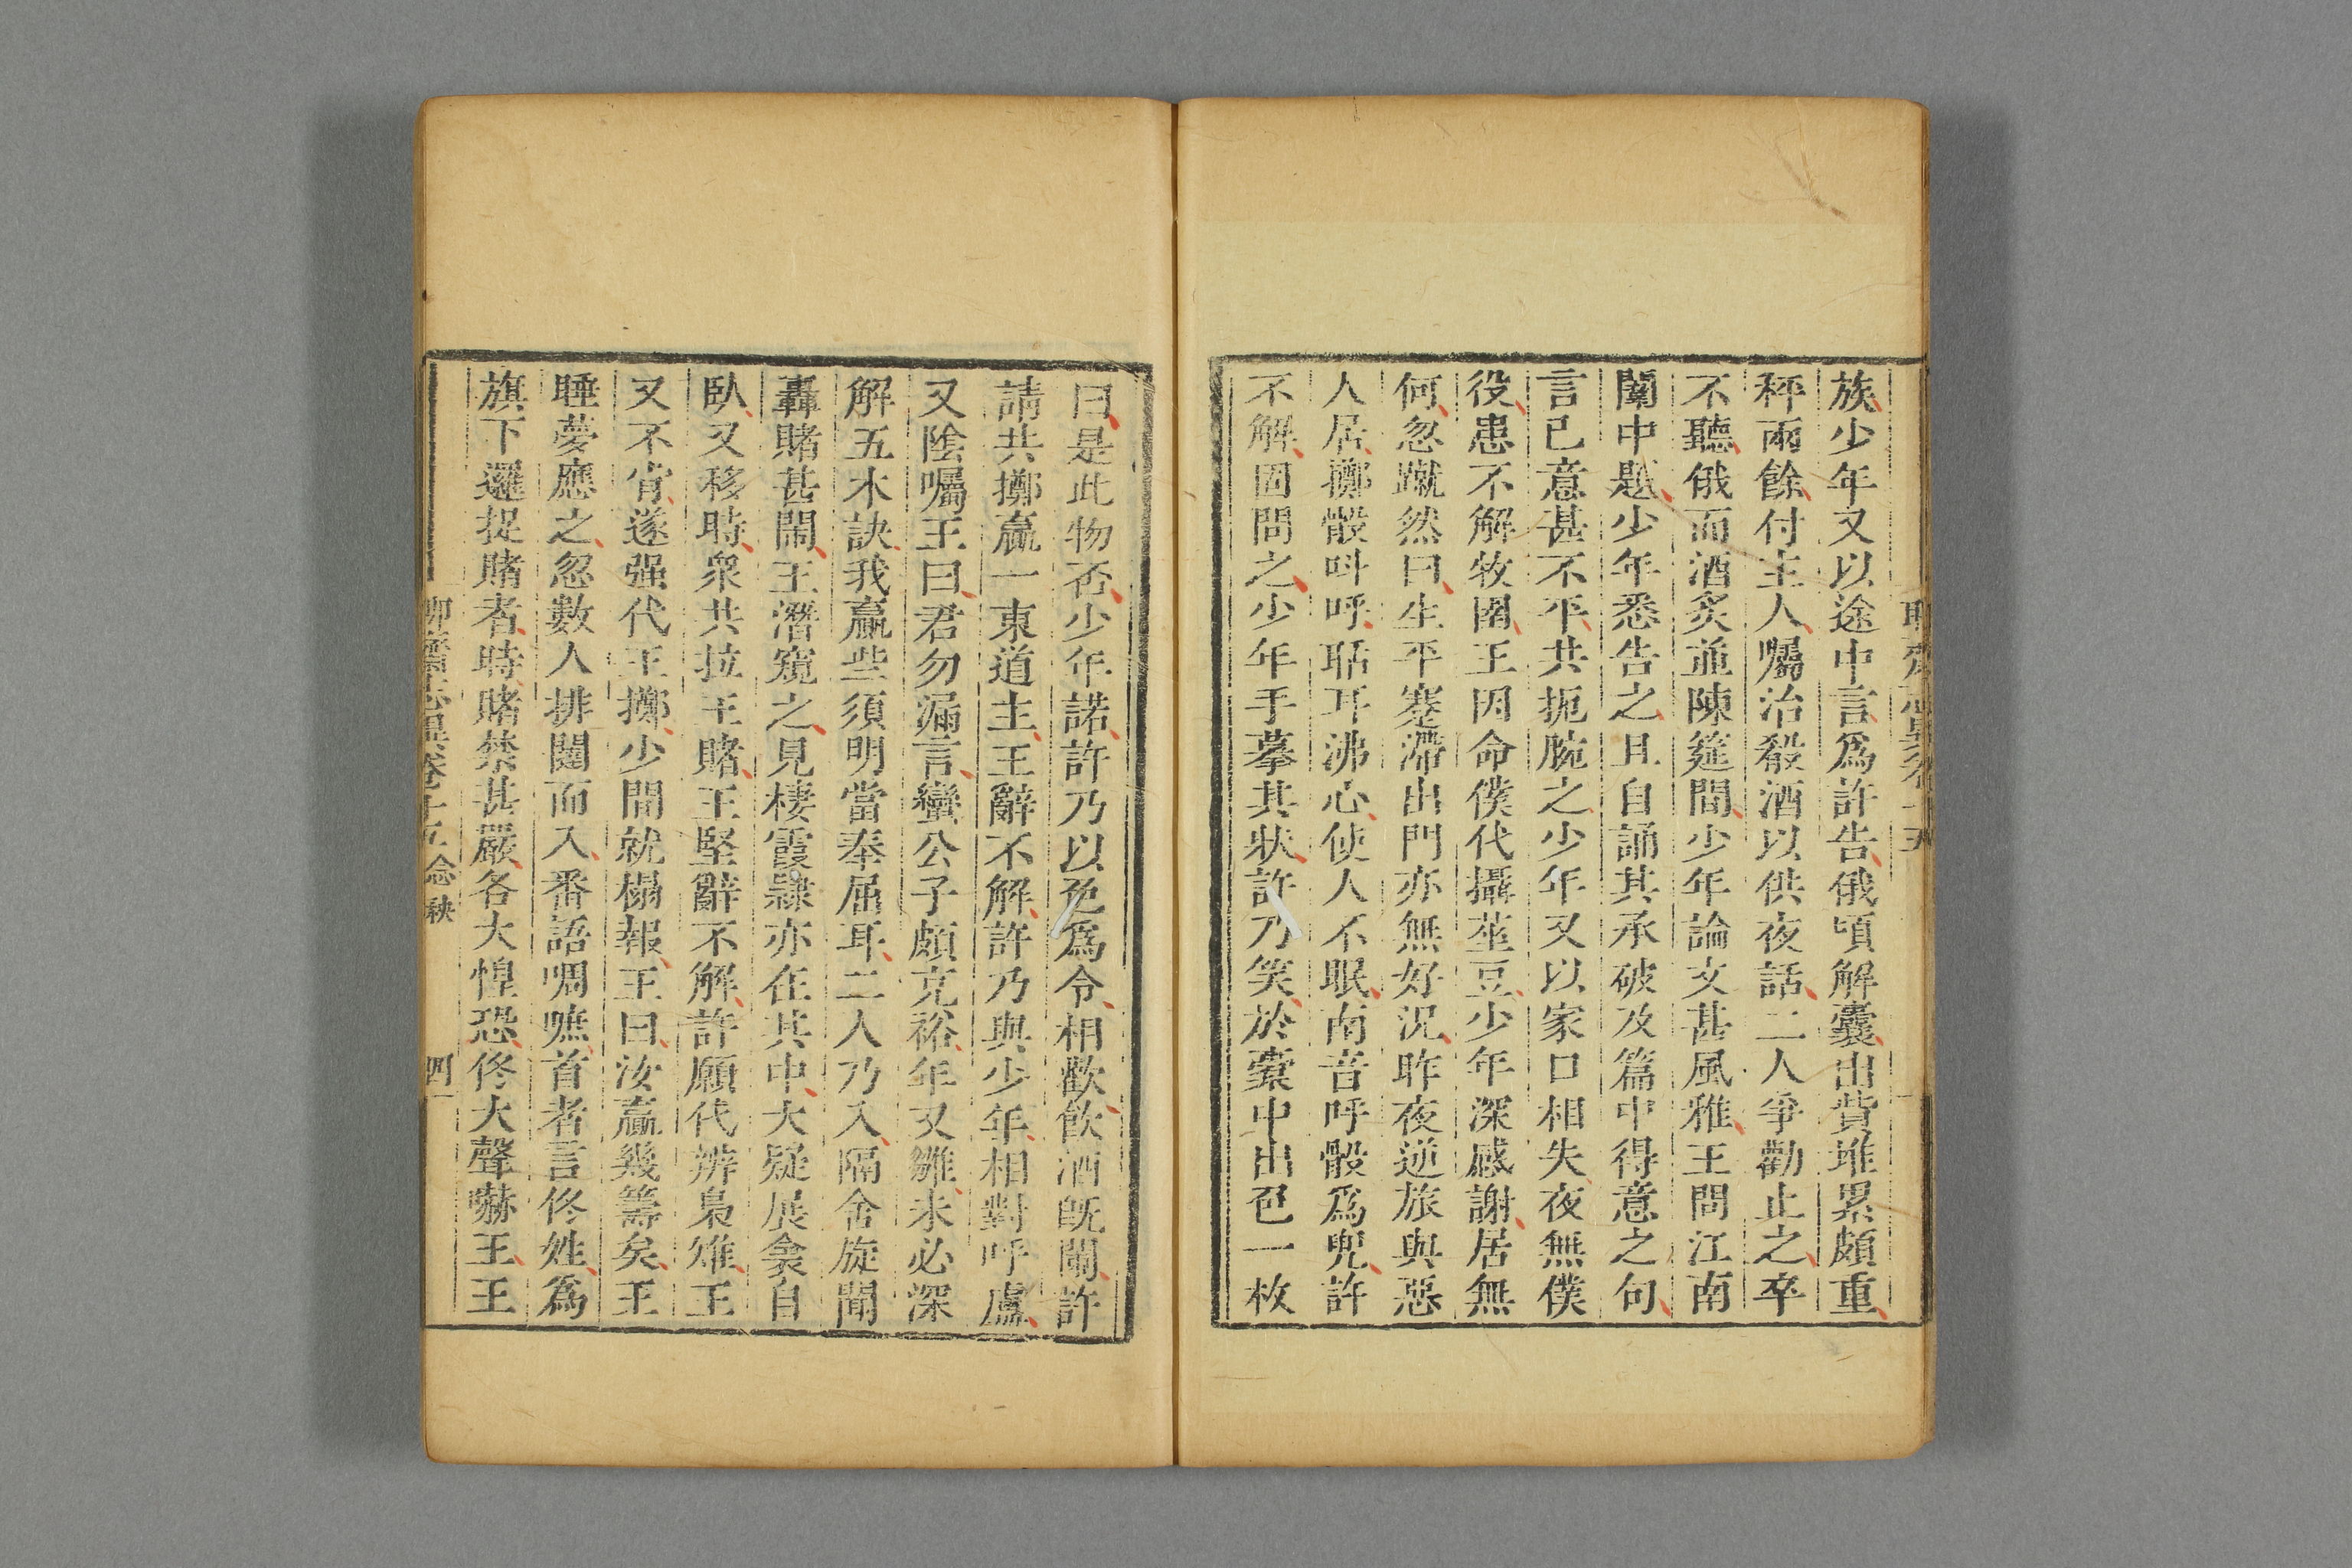 族少年又以途中言爲許告俄頃解囊出貲堆累頗重
秤兩餘付主人囑治殽酒以供夜話二人爭勸止之卒
不聽俄而酒炙並陳筵間少年論文甚風雅王問江南
闈中題少年悉告之且自誦其承破及篇中得意之句
言已意甚不平共扼腕之少年又以家口相失夜無僕
役患不解牧圉王因命僕代攝莝豆少年深感謝居無
何忽蹴然曰生平蹇滯出門亦無好況昨夜逆旅與惡
人居擲骰呌呼聒耳沸心使人不眠南音呼骰爲兜許
不解固問之少年手摹其狀許乃笑於橐中出色一枚
曰是此物否少年諾許乃以色爲令相歡飲酒旣闌許
請共擲贏一東道主王辭不解許乃與少年相對呼盧
又陰囑王曰君勿漏言蠻公子頗充裕年又雛未必深
解五木訣我贏些須明當奉屈耳二人乃入隔舍旋聞
轟賭甚鬧王潛窺之見棲霞隸亦在其中大疑展衾自
臥又移時衆共拉王賭王堅辭不解許願代辨梟雉王
又不肯遂强代王擲少間就榻報王曰汝贏幾籌矣王
睡夢應之忽數人排闥而入番語啁嗻首者言佟姓爲
旗下邏捉賭者時賭禁甚嚴各大惶恐佟大聲嚇王王
聊齋志異卷十五 念秧 四